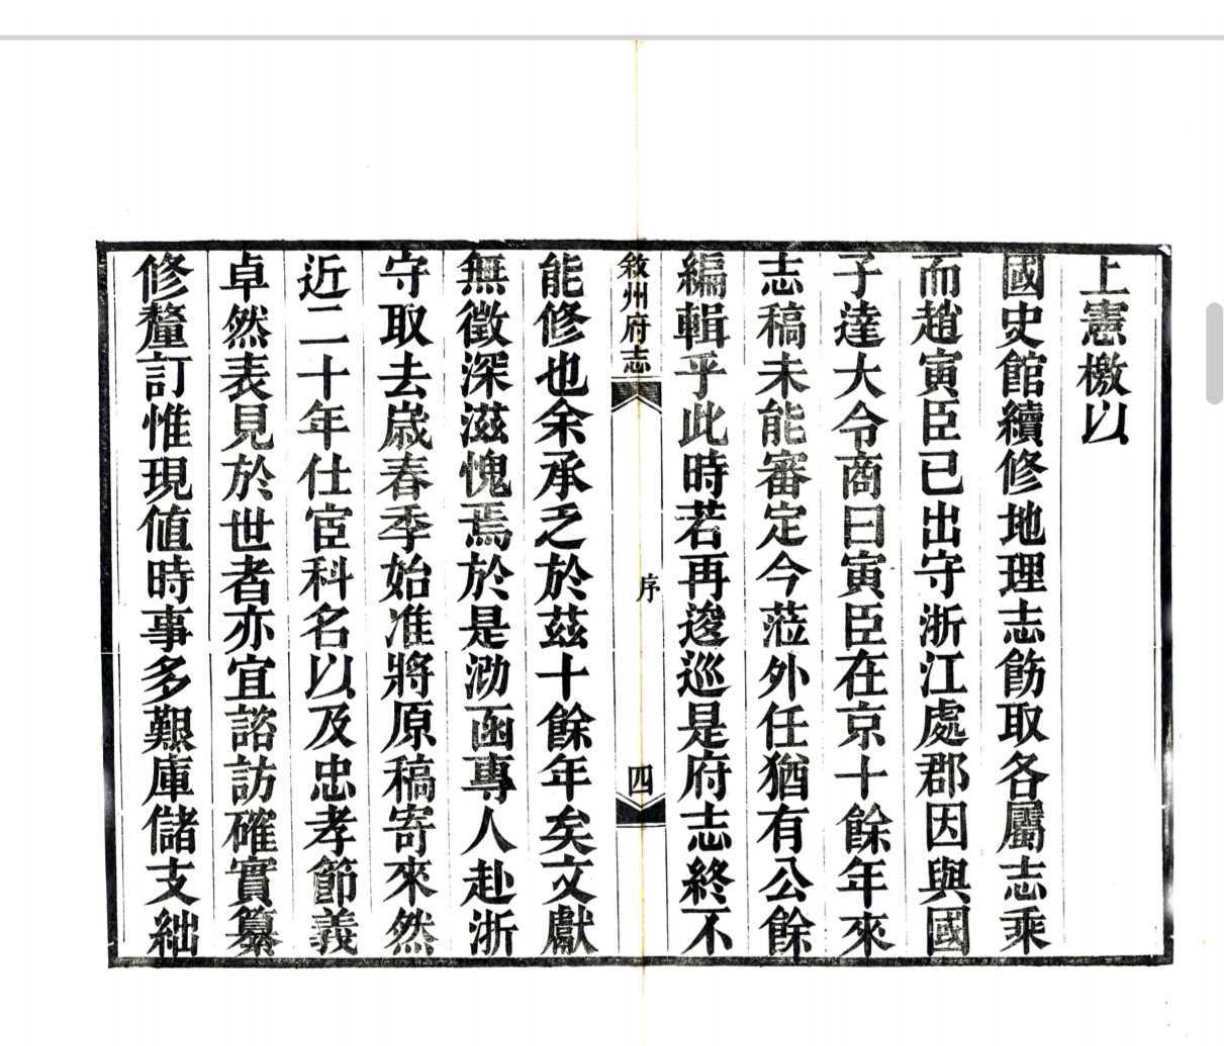 上憲檄以
國史館續修地理志飭取各屬志乘
而趙寅臣已出守浙江處郡因與國
子達大令商曰寅臣在京十餘年來
志稿未能審定今蒞外任猶有公餘
編輯乎此時若再逡巡是府志終不
敘州府志
序
四
能修也余承乏於茲十餘年矣文獻
無徵深滋愧焉於是泐函專人赴浙
守取去歲春季始准將原稿寄來然
近二十年仕宦科名以及忠孝節義
卓然表見於世者亦宜諮訪確實纂
修釐訂惟現值時事多艱庫儲支絀